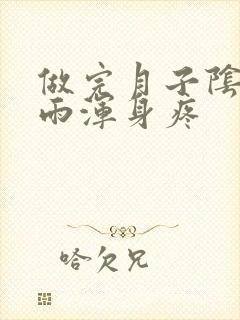 做完月子陰
雨渾身疼
哈欠兄